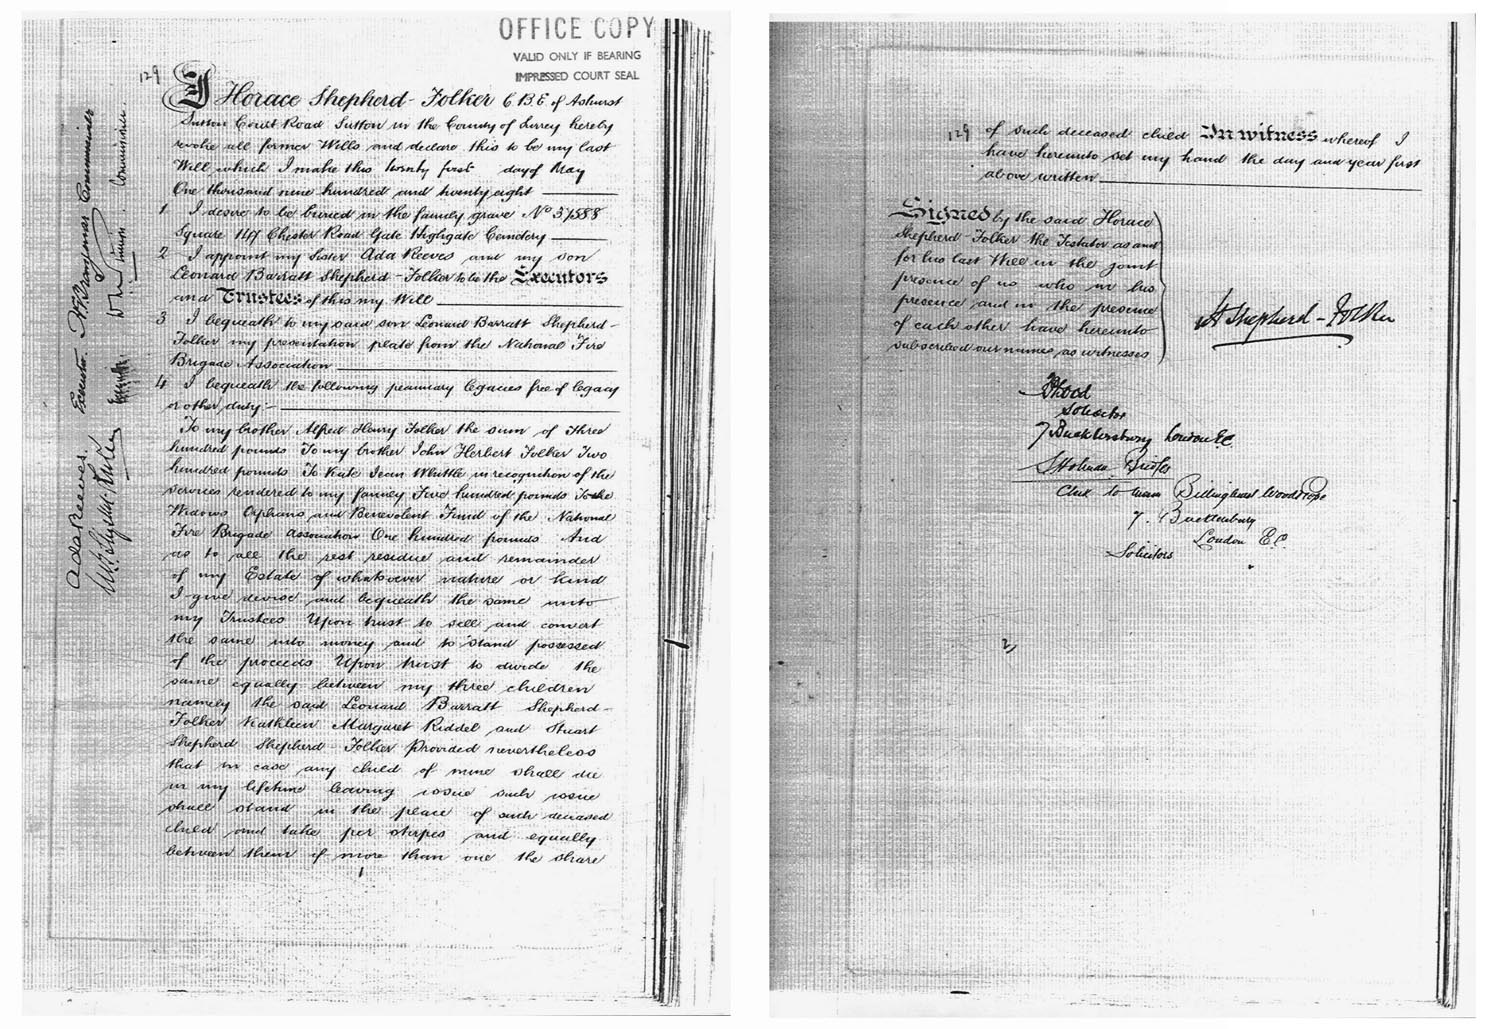 OFFICE COPY
VALID ONLY IF BEARING
IMPRESSED COURT SEAL
129
I Horace Shepherd-Folker C.B.E. of Ashurst
Sutton Court Road Sutton in the County of Surrey hereby
revoke all former Wills and declare this to be my last
Will which I make this twenty first day of May
One thousand nine hundred and twenty eight
1 I desire to be buried in the family grave No 37588
Square 147 Chester Road Gate Highgate Cemetery
2 I appoint my Sister Ada Reeves and my son
Leonard Barratt Shepherd-Folker to be the Executors
and Trustees of this my Will
3 I bequeath to my said son Leonard Barratt Shepherd-
Folker my presentation plate from the National Fire
Brigade Association
4 I bequeath the following pecuniary legacies free of legacy
or other duty:-
To my brother Alfred Henry Folker the sum of Three
hundred pounds To my brother John Herbert Folker Two
hundred pounds To Kate Jean Whittle in recognition of the
services rendered to my family Five hundred pounds To the
Widows Orphans and Benevolent Fund of the National
Fire Brigade Association One hundred pounds And
as to all the rest residue and remainder
of my Estate of whatsoever nature or kind
I give devise and bequeath the same unto
my Trustees Upon trust to sell and convert
the same into money and to stand possessed
of the proceeds Upon trust to divide the
same equally between my three children
namely the said Leonard Barratt Shepherd-
Folker Kathleen Margaret Riddel and Stuart
Shepherd Shepherd-Folker Provided nevertheless
that in case any child of mine shall die
in my lifetime leaving issue such issue
shall stand in the place of such deceased
child and take per stirpes and equally
between them if more than one the share
1
Ada Reeves. Executor.
Commissioner
Commissioner.
129 of such deceased child In witness whereof I
have hereunto set my hand the day and year first
above written
Signed by the said Horace
Shepherd-Folker the Testator as and
for his last Will in the joint
presence of us who in his
presence and in the presence
of each other have hereunto
subscribed our names as witnesses
H Shepherd-Folker
Solicitor
7 Bucklersbury London E.C.
Clerk to Billinghurst Wood & Pope
7. Bucklersbury
London E.C.
Solicitors
2